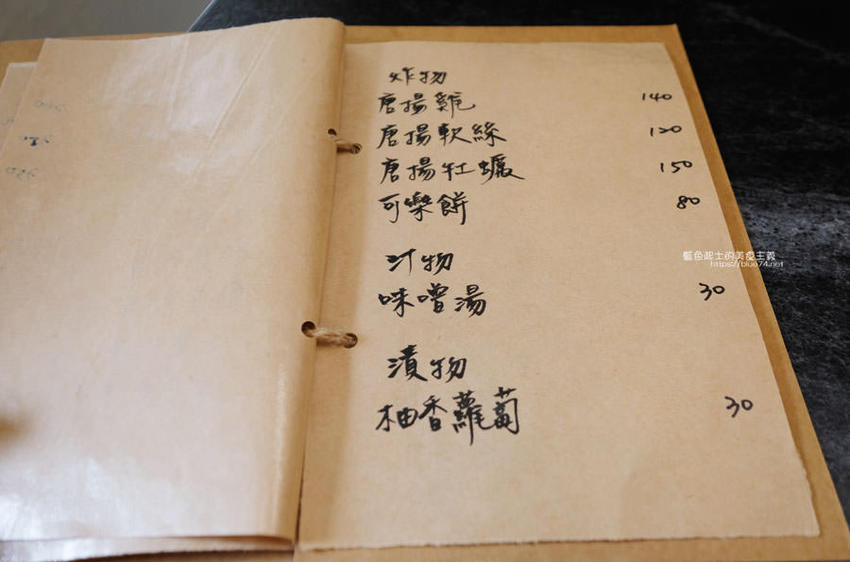 炸物
唐揚雞 140
唐揚軟絲 120
唐揚牡蠣 150
可樂餅 80
汁物
味噌湯 30
漬物
柚香蘿蔔 30
藍色起士的美食主義
https://blue74.net